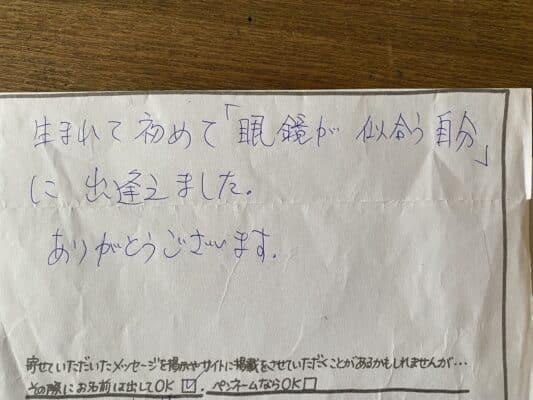 生まれて初めて「眼鏡が似合う自分」
に出逢えました。
ありがとうございます。
寄せていただいたメッセージを掲示やサイトに掲載をさせていただくことがあるかもしれませんが…
その際にお名前は出してOK ☑. ペンネームならOK □